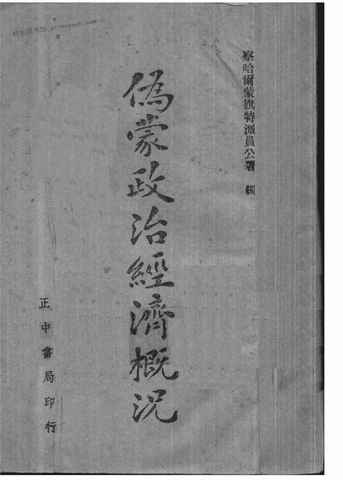 察哈爾蒙旗特派員公署 編
偽蒙政治經濟概況
正中書局印行